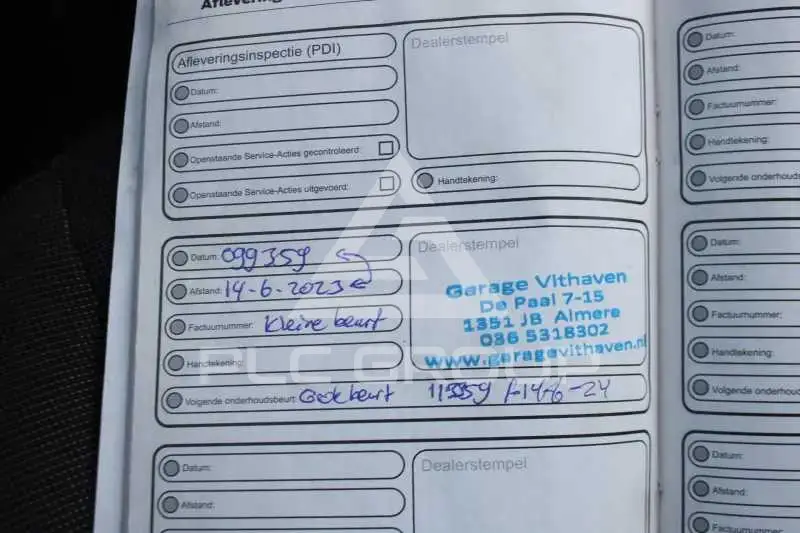 Aflevering
Afleveringsinspectie (PDI)
Datum:
Afstand:
Openstaande Service-Acties gecontroleerd:
Openstaande Service-Acties uitgevoerd:
Dealerstempel
Handtekening:
Datum: 099359
Afstand: 14-6-2023
Factuurnummer: Kleine beurt
Handtekening:
Volgende onderhoudsbeurt: Grote beurt 115359 14-6-24
Dealerstempel
Garage Vithaven
De Paal 7-15
1351 JB Almere
036 5318302
www.garagevithaven.nl
PLC GROUP
Datum:
Afstand:
Dealerstempel
Datum:
Afstand:
Factuurnummer:
Handtekening:
Volgende onderhouds
Datum:
Afstand:
Factuurnummer:
Handtekening:
Volgende onderhouds
Datum:
Afstand:
Factuurnummer: